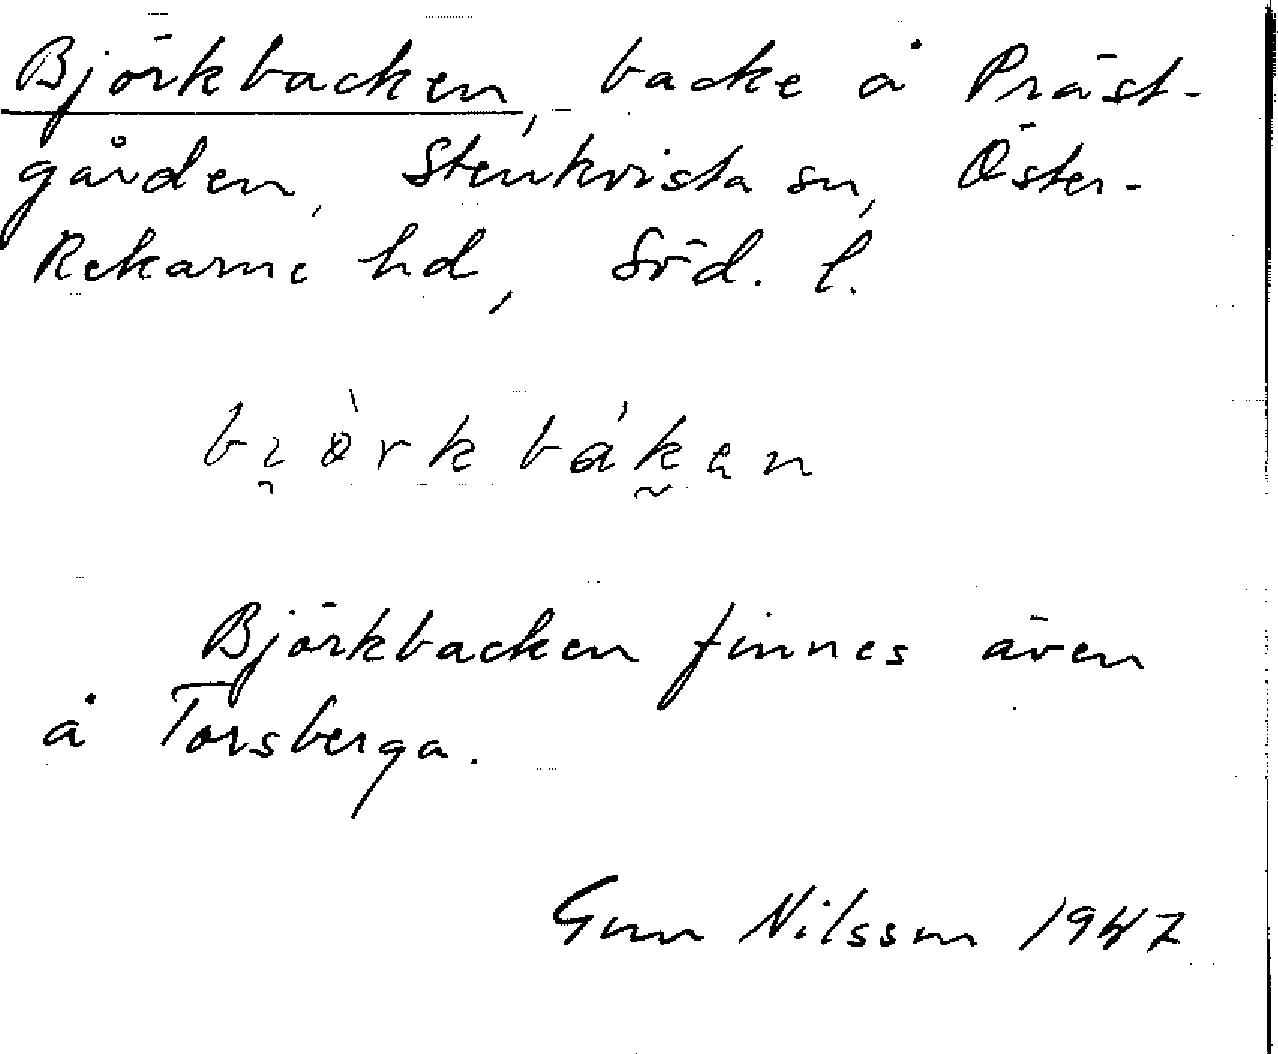 Björkbacken, backe å Präst-
gården, Stenkvista sn, Öster-
Rekarne hd, Söd. l.
bi̯ö̀rkbák̰en
Björkbacken finnes även
å Torsberga.
Gun Nilsson 1947